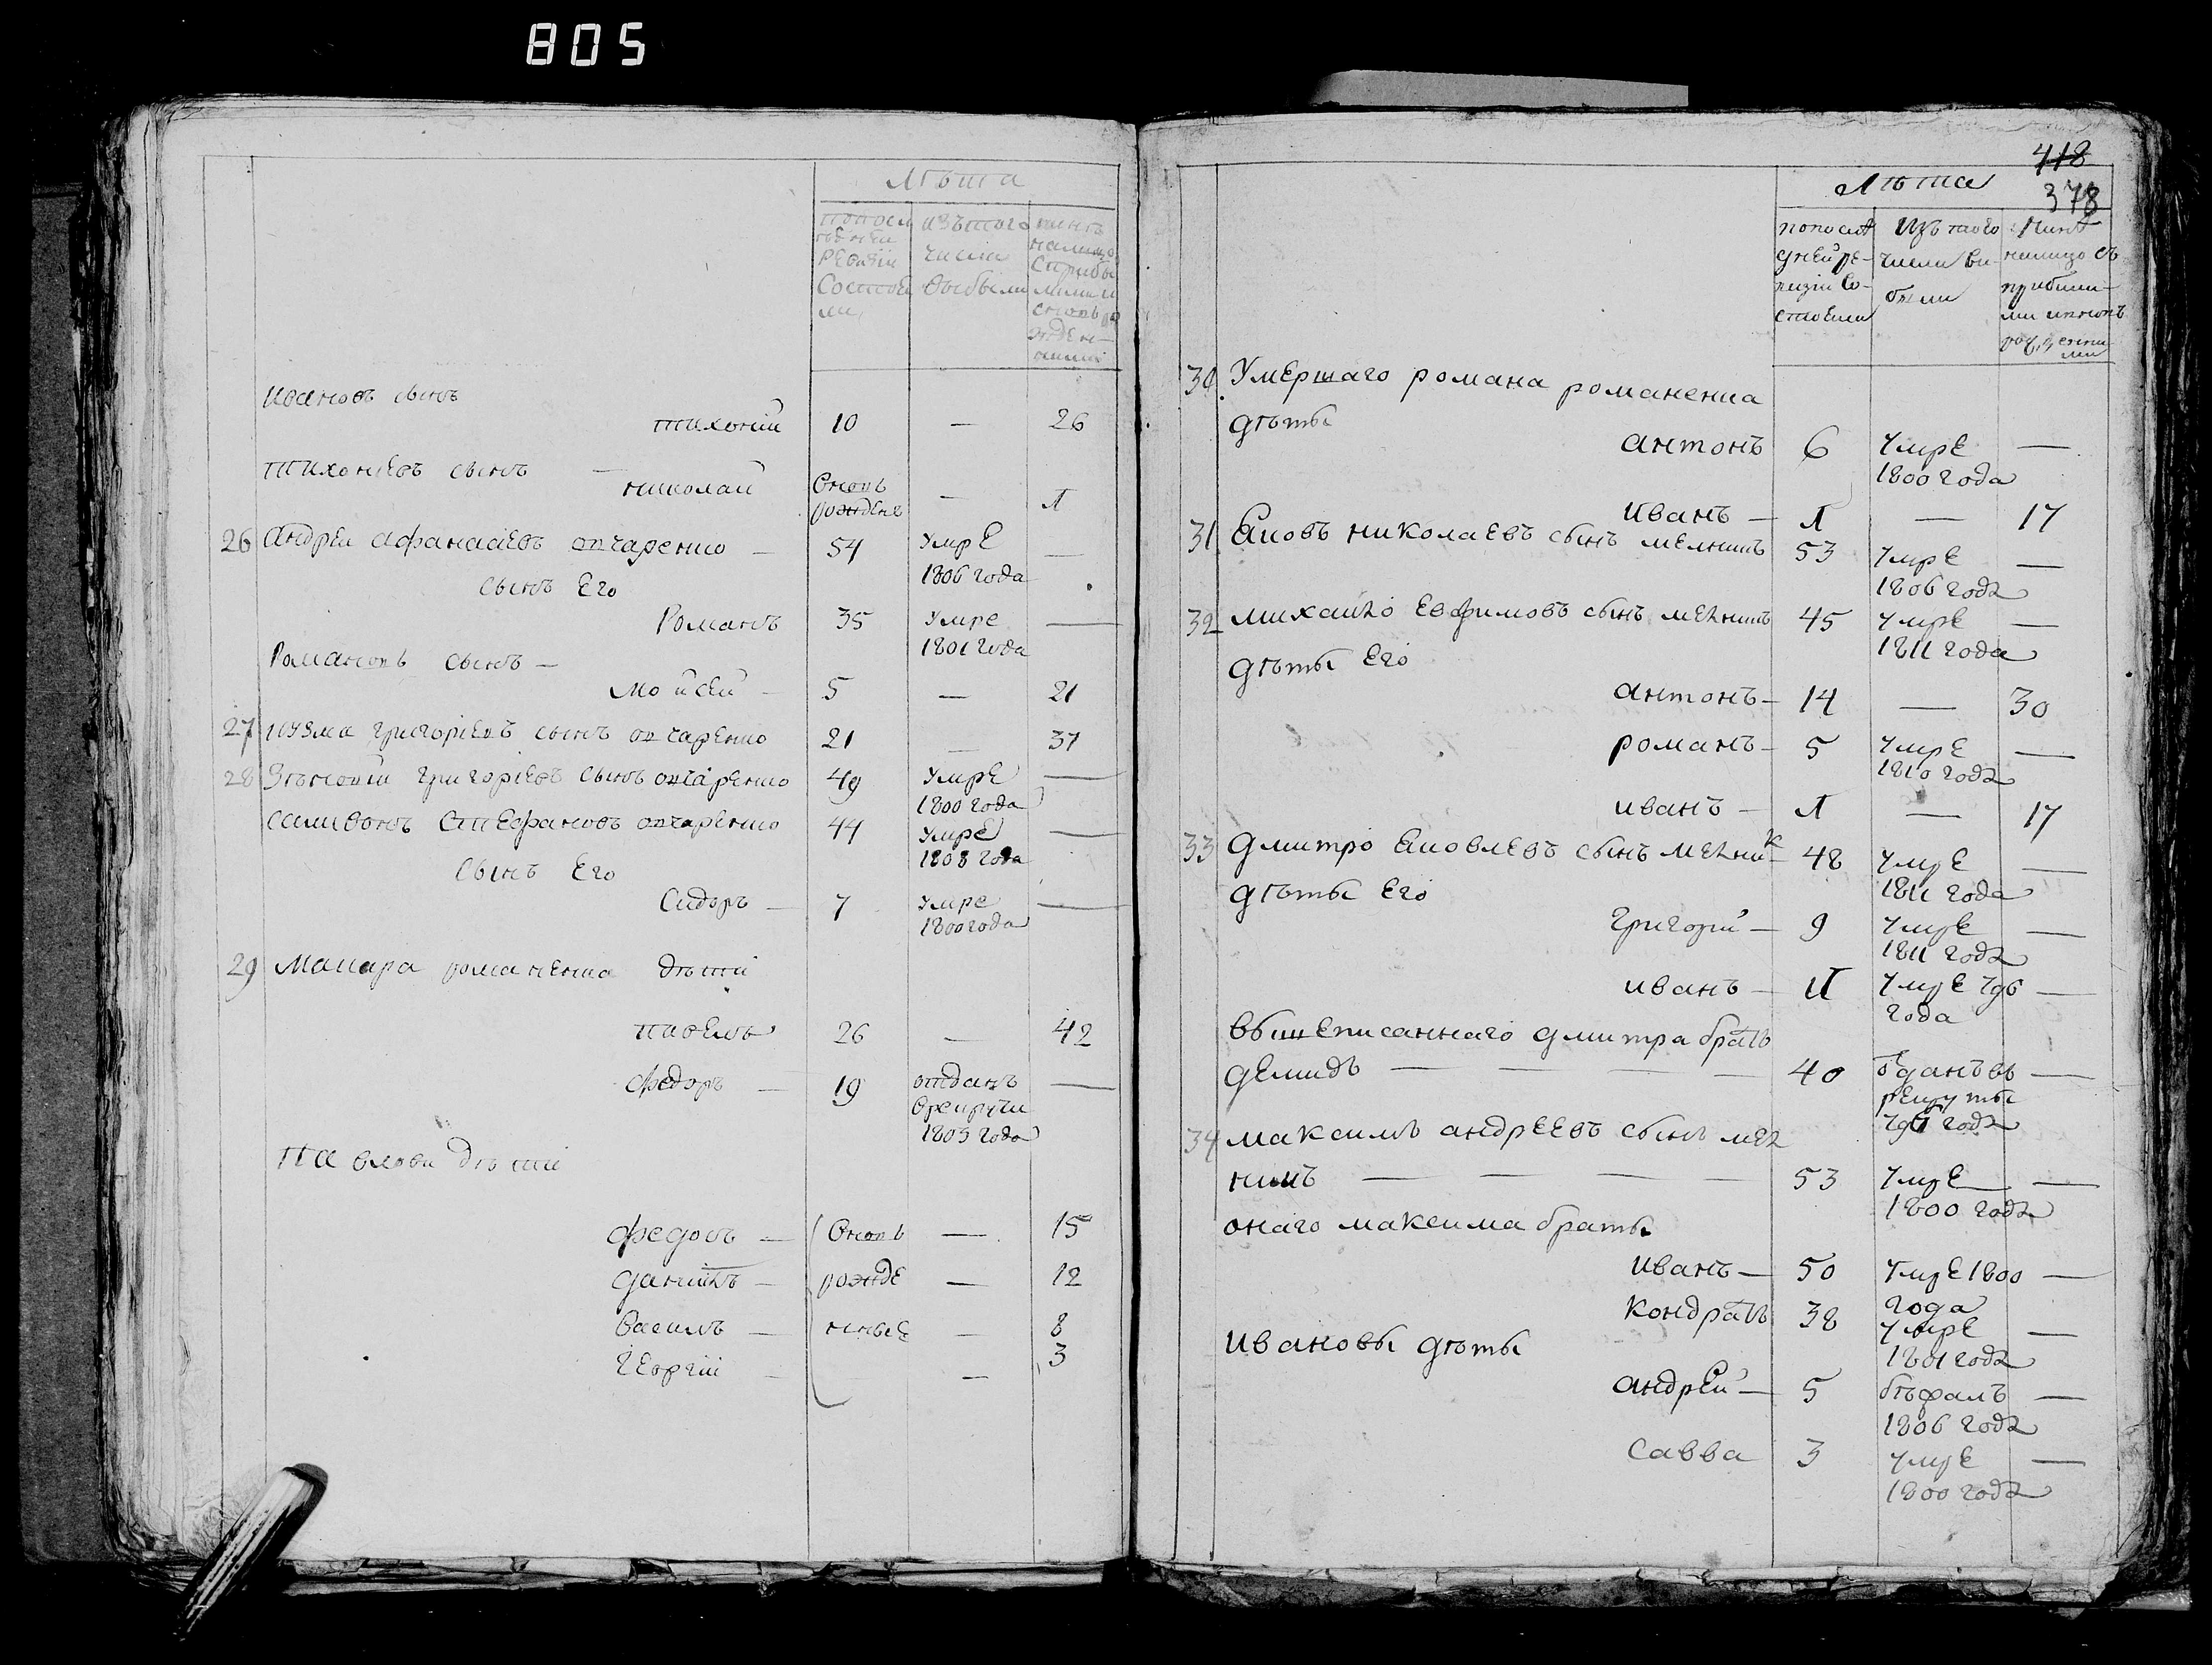 805
Лѣта
попосл изътого нинѣ
ѣдней числа налицо
ревизіи выбыли сприбы
состоя лими и
ли вновь ро
жден
ними
Ивановъ сынъ
тихоній 10 — 26
тихонієвъ сынъ —
николай вновь — 1
рожденъ
26 Андрей Афанасіевъ овчаренко — 54 умре —
1806 года
сынъ его
Романъ 35 умре —
1801 года
Романовъ сынъ —
Мойсей — 5 — 21
27 Кузма григоріевъ сынъ овчаренко 21 — 37
28 Зѣновій григоріевъ сынъ овчаренко 49 умре —
1800 года
самисонъ Стефановъ овчаренко 44 умре —
1808 года
сынъ его
Сидоръ — 7 умре —
1800 года
29 Макара романенка дѣти
павелъ 26 — 42
федоръ — 19 отданъ —
врекрути
1803 года
Павлови дѣти
федоръ — вновь — 15
данилъ — рожде — 12
Василь — нные — 8
Георгій — — 3
418
378
Лѣта
попослѣ изъ того нинѣ
дней ре- числа ви- налицо съ
визіи со- были прибыли-
стояли ми ивновь
рожденни-
ми
30 Умершаго романа романенка
дѣты
антонъ 6 умре —
1800 года
иванъ — 1 — 17
31 Яковъ николаевъ сынъ мелникъ 53 умре —
1806 года
32 михайло евфимовъ сынъ мелникъ 45 умре —
1811 года
дѣты его
антонъ — 14 — 30
романъ — 5 умре —
1810 года
иванъ — 1 — 17
33 дмитро яковлевъ сынъ мелник 48 умре —
1811 года
дѣты его
григорій — 9 умре —
1811 года
иванъ — умре 796 —
года
вышеписаннаго дмитра братъ
демидъ — — — 40 ѿданъ въ —
рекруты
года
34 максимъ андреевъ сынъ мел
никъ — — — — 53 умре —
1800 года
онаго максима браты
иванъ — 50 умре 1800 —
года
кондратъ 38 умре —
1801 года
ивановы дѣты
андрей — 5 бѣжалъ —
1806 года
савва 3 умре —
1800 года